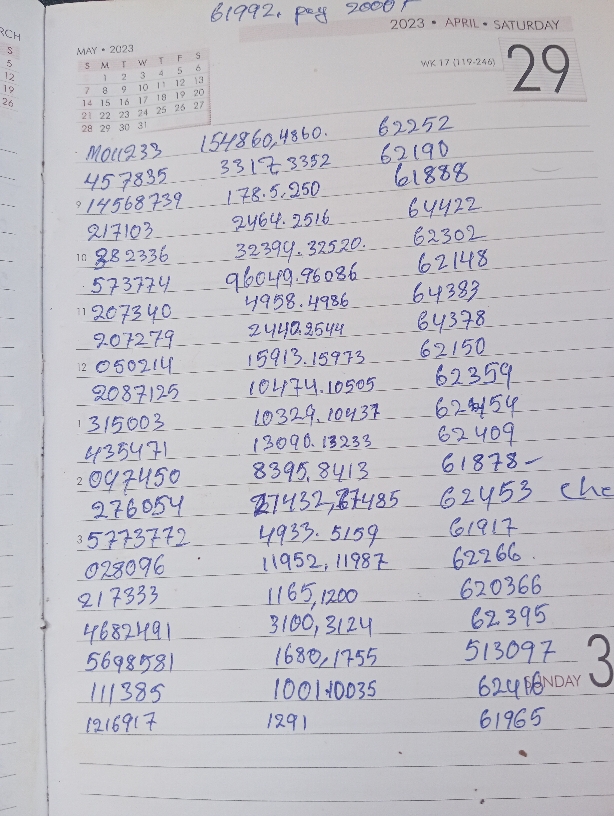 61992. pay 2000
RCH
2023 • APRIL • SATURDAY
MAY • 2023
S M T W T F S
1 2 3 4 5 6
7 8 9 10 11 12 13
14 15 16 17 18 19 20
21 22 23 24 25 26 27
28 29 30 31
S
5
12
19
26
WK 17 (119-246)
29
154860,4860. 62252
457835 3317,3352 62190
9 14568739 178.5.250 61888
217103 2464.2516 64422
10 382336 32394.32520. 62302
573774 96049.96086 62148
11 207340 4958.4986 64383
207279 2440.2544 64378
12 050214 15913.15973 62150
2087125 10474.10505 62359
1 315003 10329.10437 62454
435471 13090.13233 62409
2 097450 8395.8413 61878
276054 27432,27485 62453 Che
3 5773772 4933.5159 61917
028096 11952,11987 62266.
217333 1165,1200 620366
4682491 3100,3124 62395
5698581 1680,1755 513097
111385 62416
SUNDAY
3
1216917 1291 61965